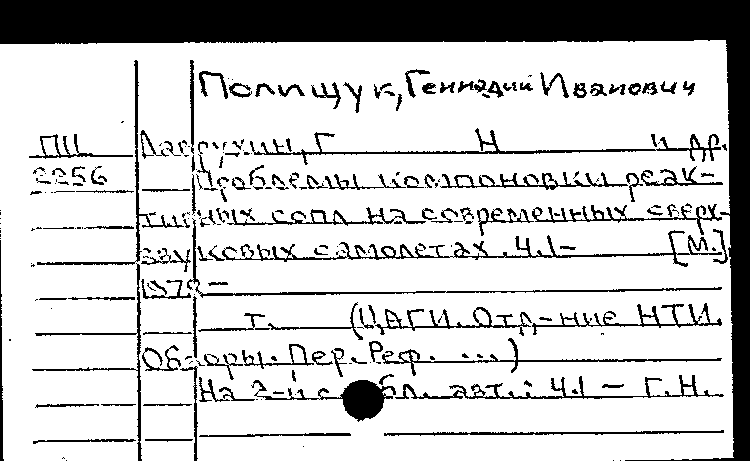 Полищук, Геннадий Иванович
ПЦ Лаврухин, Г Н и др.
2256 Проблемы компоновки реак-
тивных сопл на современных сверх-
звуковых самолетах. Ч.1- [М.],
1972-
т. (ЦАГИ. Отд-ние НТИ.
Обзоры. Пер. Реф. ...)
На 2-й с обл. авт.: Ч.1 - Г.Н.